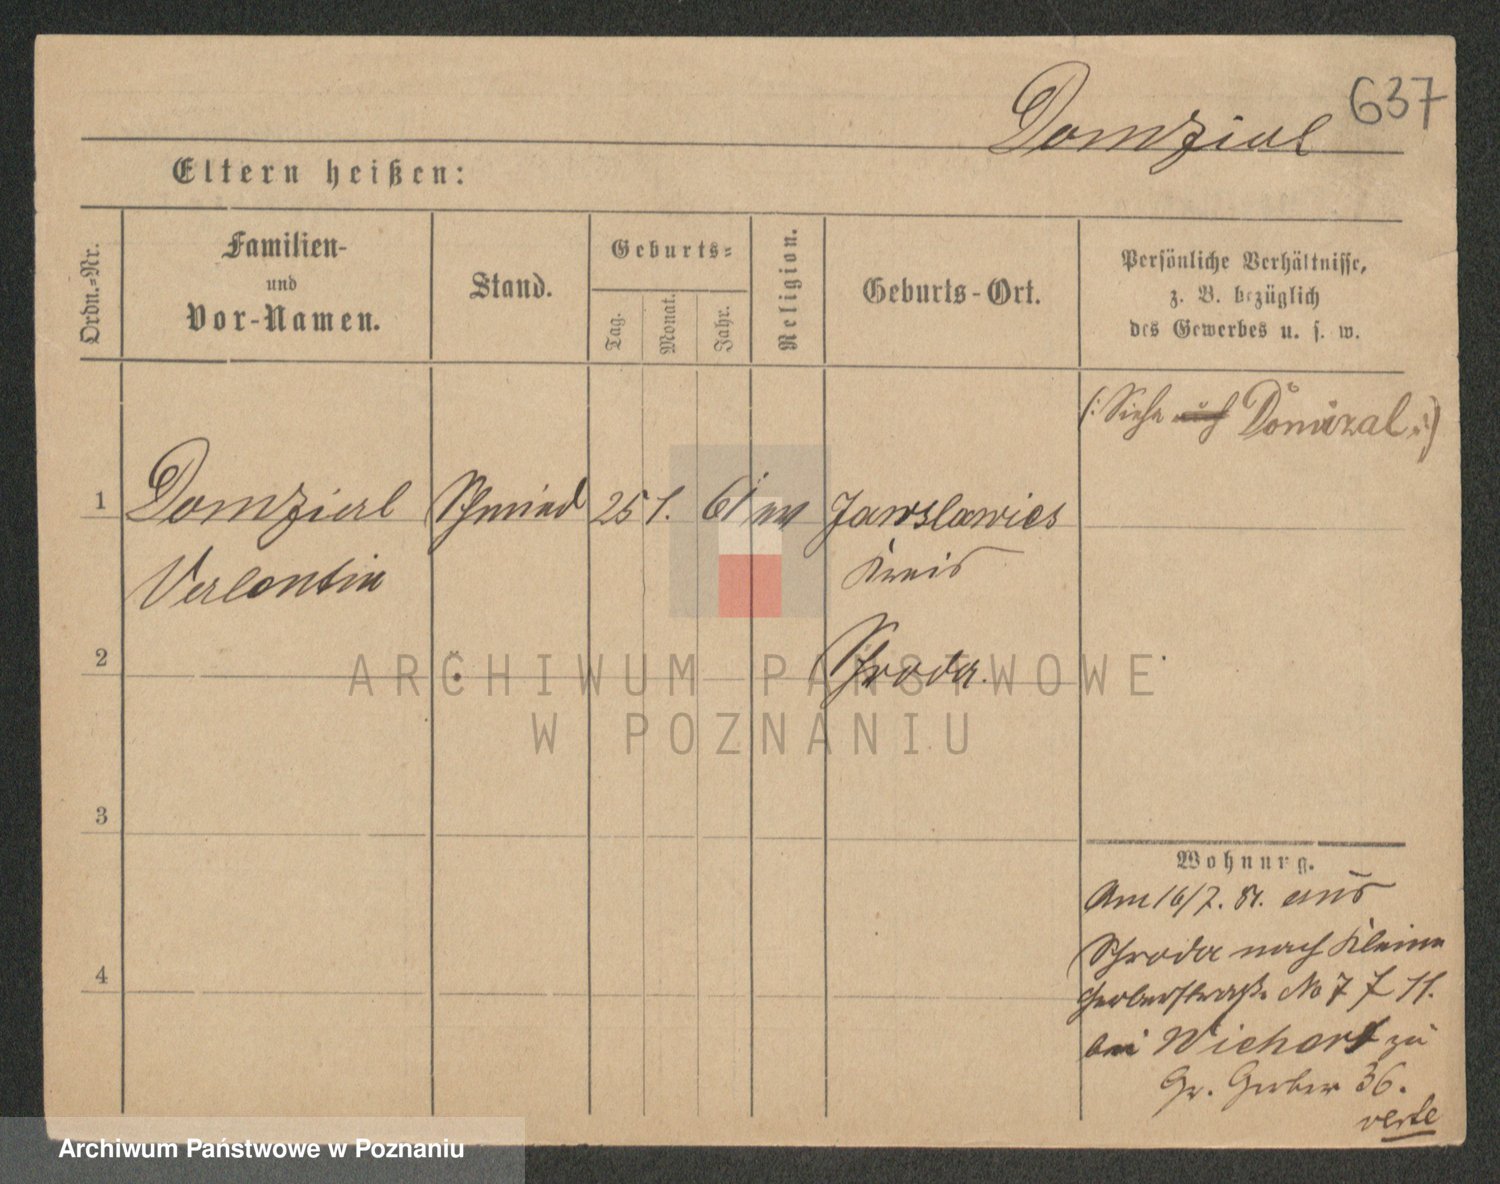 637
Domzial
Eltern heißen:
Ordn.=Nr.
Familien-
und
Vor-Namen.
Stand.
Geburts=
Tag.
Monat.
Jahr.
Religion.
Geburts-Ort.
Persönliche Verhältnisse,
z. B. bezüglich
des Gewerbes u. s. w.
(: Siehe auch Domizal :)
1 Domzial Schmied 25 1. 61 Jaroslawiec
Valentin Kreis
2 Schroda.
3
4
Wohnung.
Am 16/7. 81. aus
Schroda nach Kleine
Gerberstraße No 7
bei Wichert zu
Gr. Gerber 36.
verte
ARCHIWUM PAŃSTWOWE
W POZNANIU
Archiwum Państwowe w Poznaniu